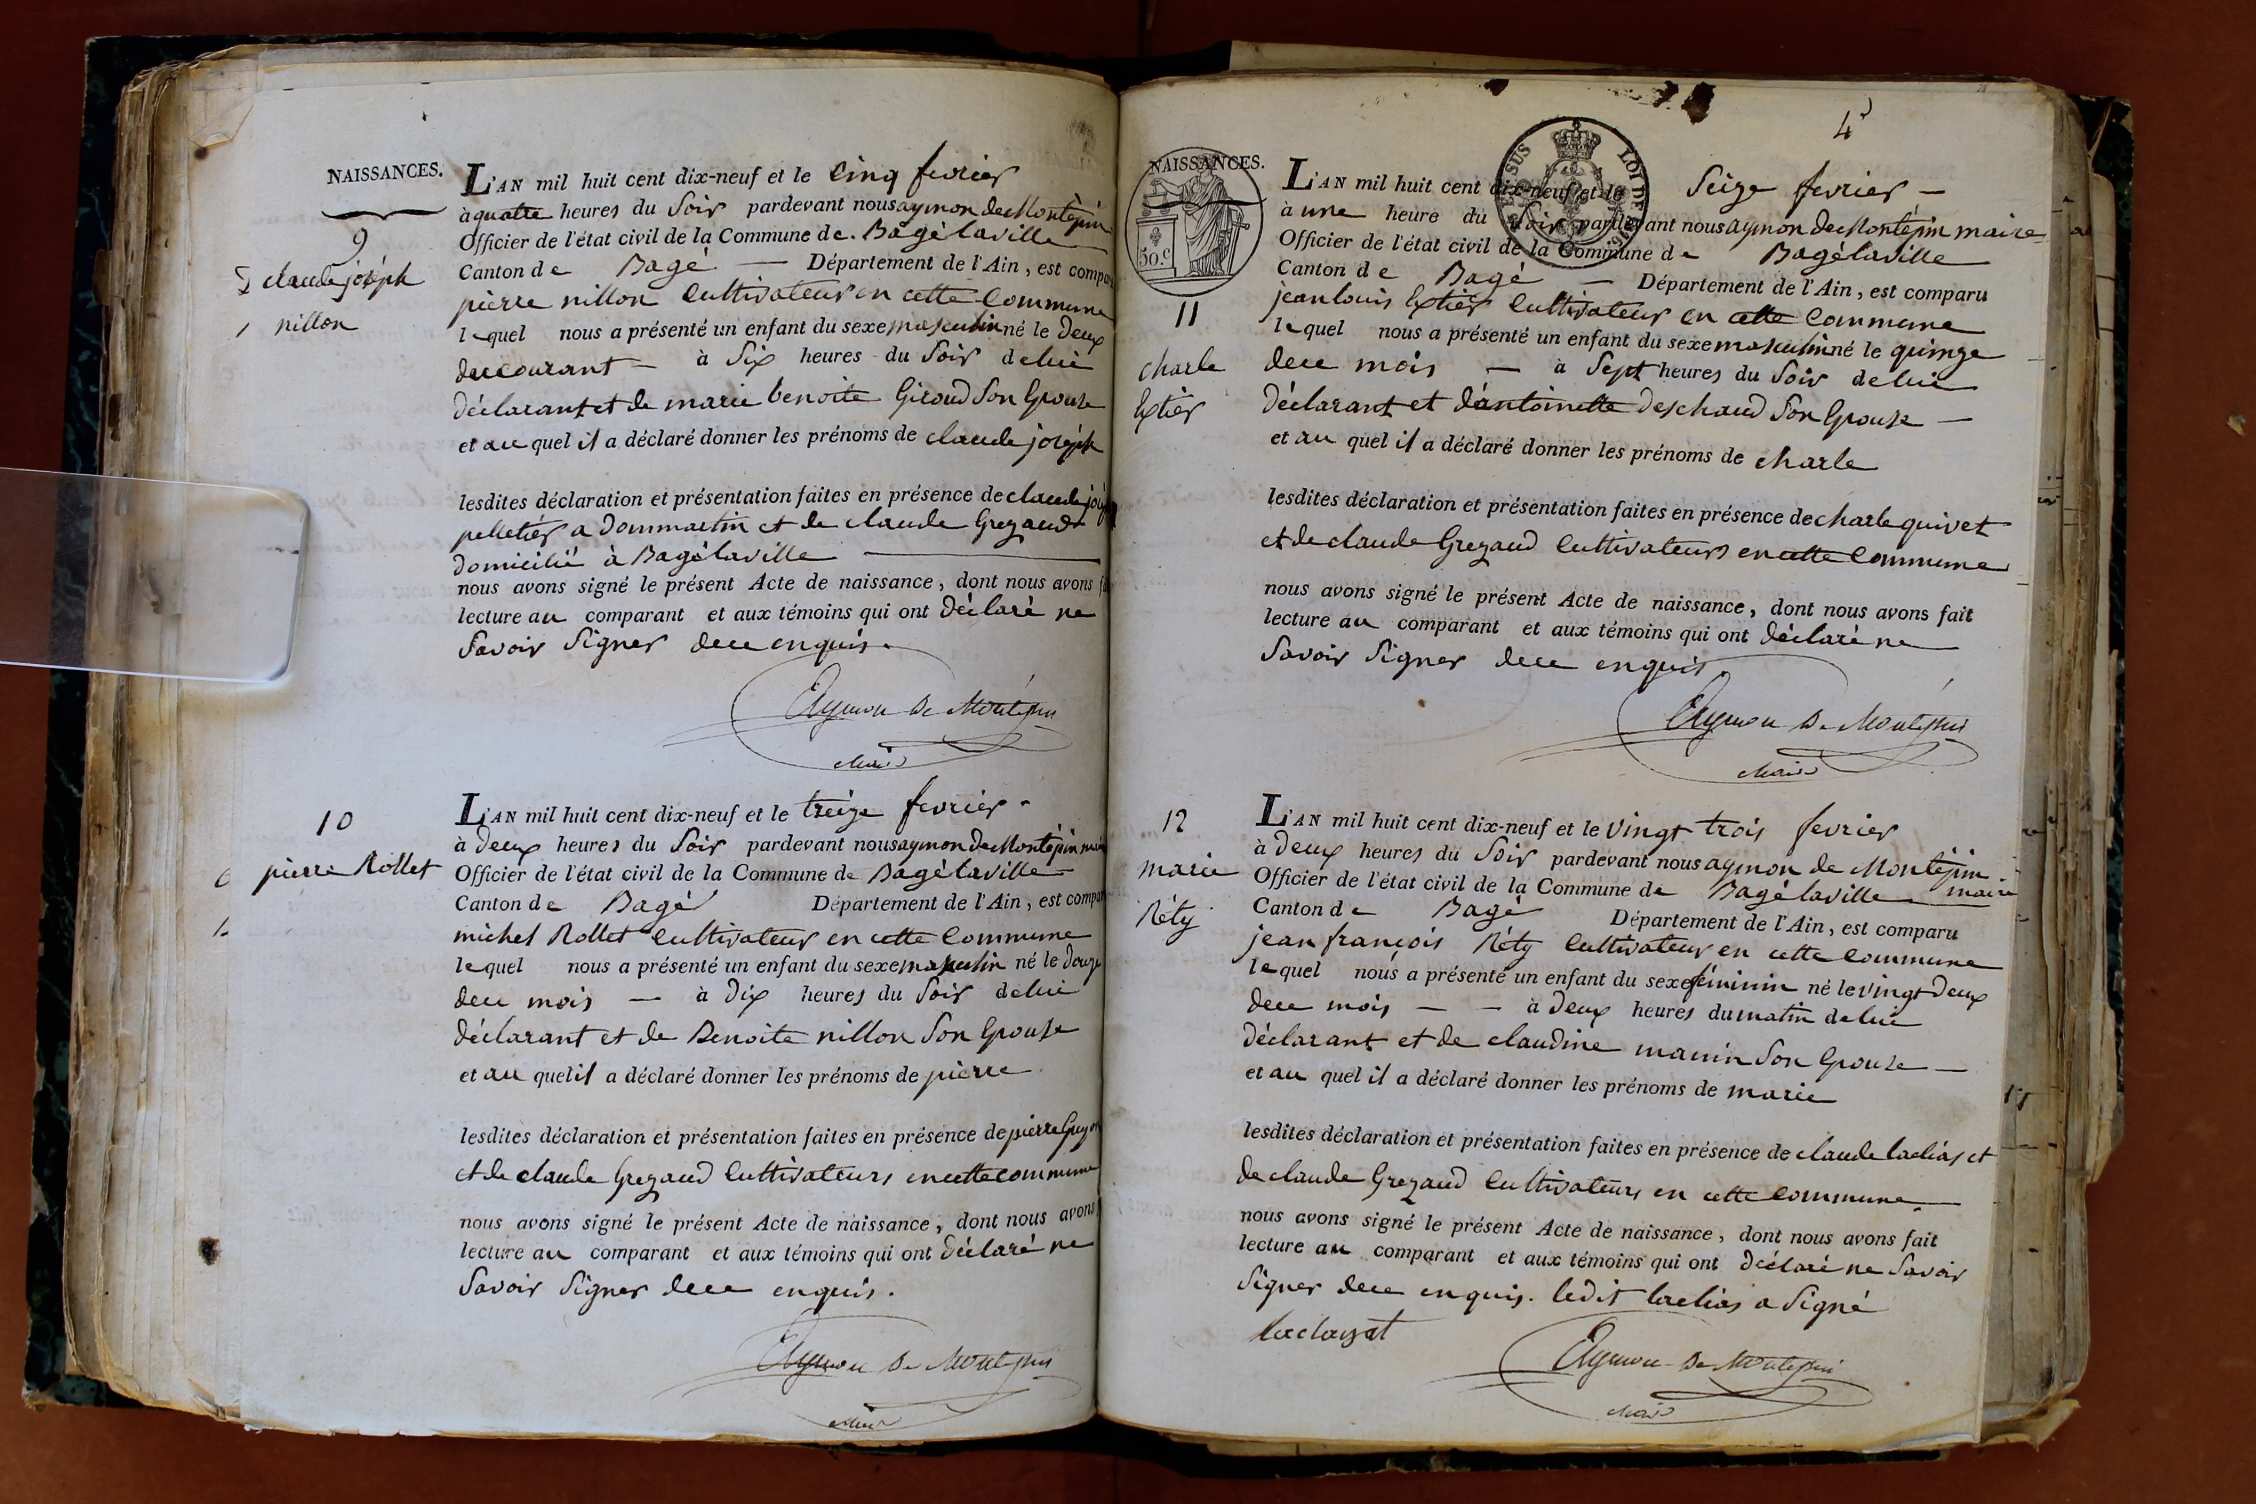 NAISSANCES.
9
claude joséph
nillon
L'AN mil huit cent dix-neuf et le Cinq fevrier
à quatre heures du Soir pardevant nous aymon de Montépin
Officier de l'état civil de la Commune de Bagélaville
Canton de Bagé — Département de l'Ain, est compa
pierre nillon Cultivateur en cette Commune
lequel nous a présenté un enfant du sexe masculin né le deux
du courant — à Six heures du Soir de lui
déclarant et de marie benoite Giroud Son Epouse
et au quel il a déclaré donner les prénoms de claude joséph
lesdites déclaration et présentation faites en présence de claude
pelletier a dommartin et de claude Grezaud
domicilié à Bagélaville
nous avons signé le présent Acte de naissance, dont nous avons
lecture au comparant et aux témoins qui ont déclaré ne
Savoir Signer de ce enquis.
Aymon De Montépin
Maire
10
pierre Rollet
L'AN mil huit cent dix-neuf et le treize fevrier
à deux heures du Soir pardevant nous aymon de Montépin
Officier de l'état civil de la Commune de Bagélaville
Canton de Bagé Département de l'Ain, est compar
michel Rollet Cultivateur en cette Commune
lequel nous a présenté un enfant du sexe masculin né le douze
de ce mois — à dix heures du Soir de lui
déclarant et de Benoite nillon Son Epouse
et au quel il a déclaré donner les prénoms de pierre
lesdites déclaration et présentation faites en présence de pierre
et de claude Grezaud Cultivateurs en cette commune
nous avons signé le présent Acte de naissance, dont nous avons
lecture au comparant et aux témoins qui ont déclaré ne
Savoir Signer de ce enquis.
Aymon De Montépin
Maire
4
NAISSANCES.
50.c
11
charle
Extier
L'AN mil huit cent dix-neuf et le Seize fevrier —
à une heure du Soir pardevant nous aymon de Montépin maire
Officier de l'état civil de la Commune de Bagélaville
Canton de Bagé — Département de l'Ain, est comparu
jean louis Extier Cultivateur en cette Commune
lequel nous a présenté un enfant du sexe masculin né le quinze
de ce mois — à Sept heures du Soir de lui
déclarant et d'antoinette deschaud Son Epouse —
et au quel il a déclaré donner les prénoms de charle
lesdites déclaration et présentation faites en présence de charle quivet
et de claude Grezaud Cultivateurs en cette Commune
nous avons signé le présent Acte de naissance, dont nous avons fait
lecture au comparant et aux témoins qui ont déclaré ne
Savoir Signer de ce enquis.
Aymon De Montépin
Maire
12
marie
Réty
L'AN mil huit cent dix-neuf et le vingt trois fevrier
à deux heures du Soir pardevant nous aymon de Montépin
Officier de l'état civil de la Commune de Bagélaville maire
Canton de Bagé Département de l'Ain, est comparu
jean françois Réty Cultivateur en cette Commune
lequel nous a présenté un enfant du sexe féminin né le vingt deux
de ce mois — — à deux heures du matin de lui
déclarant et de claudine manin Son Epouse —
et au quel il a déclaré donner les prénoms de marie
lesdites déclaration et présentation faites en présence de claude laclias et
de claude Grezaud Cultivateurs en cette Commune
nous avons signé le présent Acte de naissance, dont nous avons fait
lecture au comparant et aux témoins qui ont déclaré ne Savoir
Signer de ce enquis. ledit laclias a Signé
Aymon De Montépin
Maire